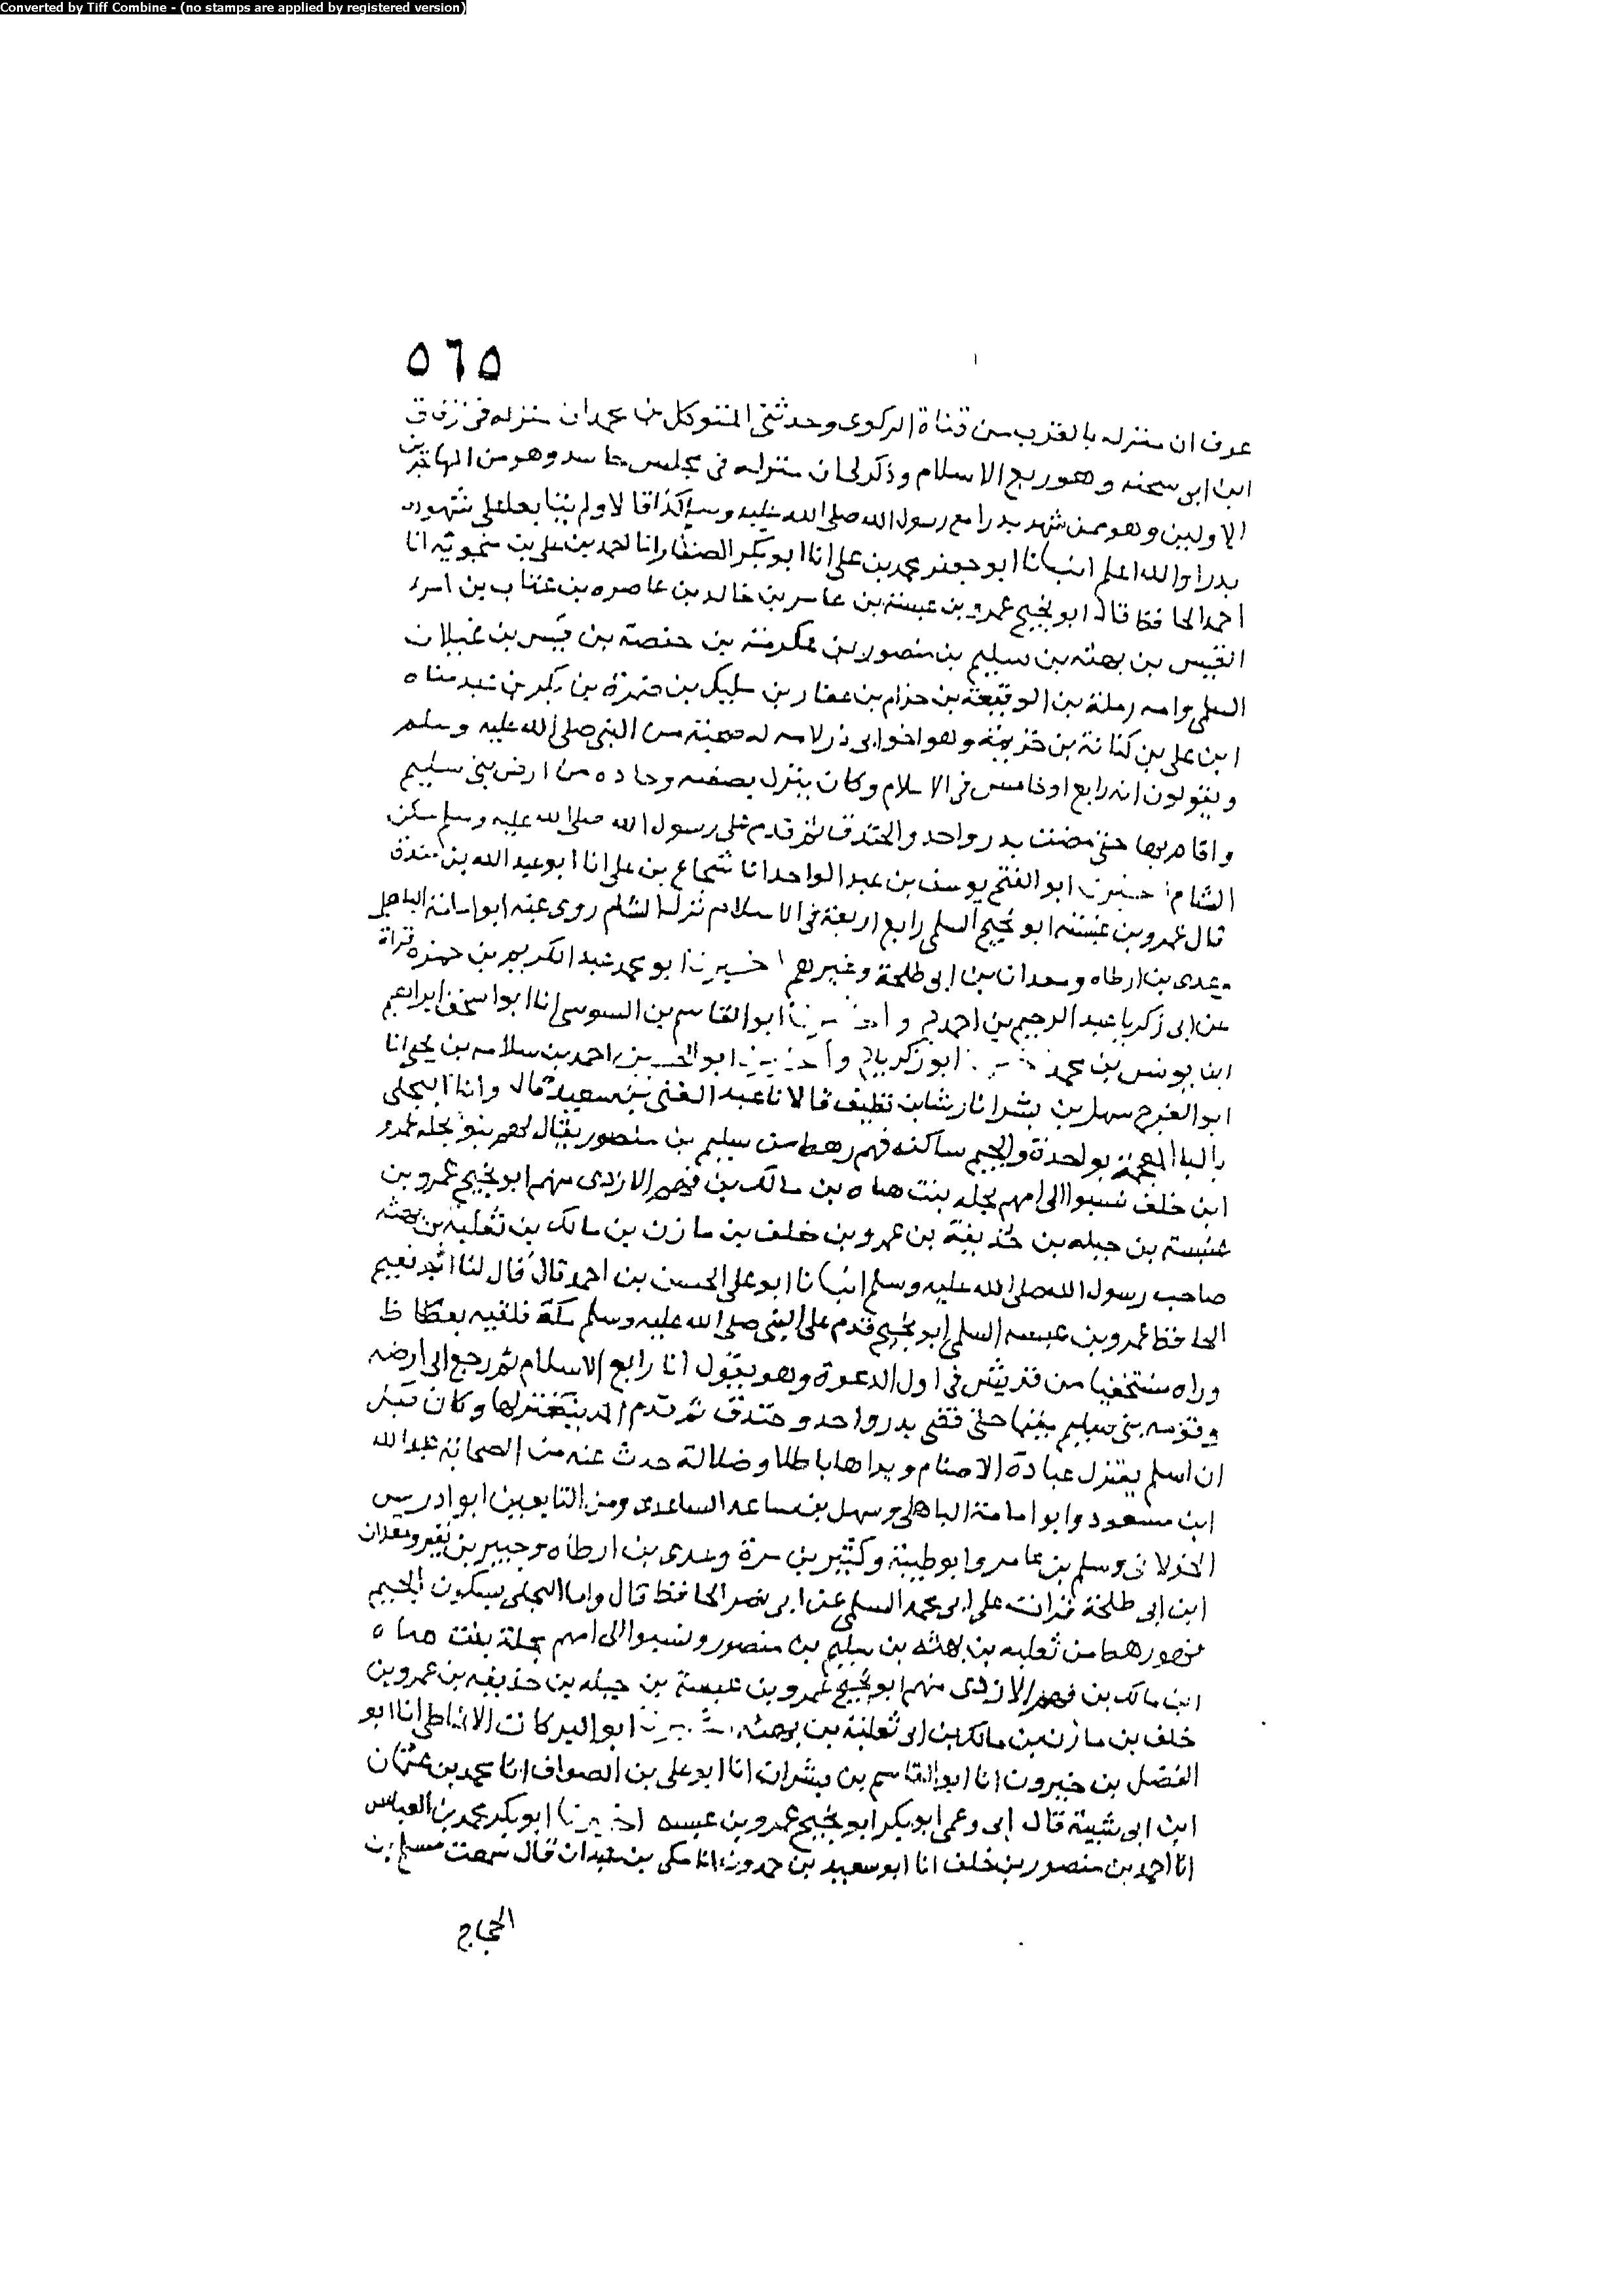 Converted by Tiff Combine - (no stamps are applied by registered version)
٥٦٥
عوف ان منزله بالقرب من قناة الركوى وحدثنى المتوكل بن محمد ان منزله فى زقاق
ابن ابى سحنه وهو ربع الاسلام وذكر لى ان منزله فى مجلس حاسد وهو من المهاجرين
الاولين وهو ممن شهد بدرا مع رسول الله صلى الله عليه وسلم كذا قالا ولم يتابعا على شهوده
بدرا والله اعلم انبانا ابو جعفر محمد بن على انا ابو بكر الصفار انا احمد بن على بن منجويه انا
احمد الحافظ قال ابو نجيح عمرو بن عبسة بن عامر بن خالد بن عاصره بن عتاب بن امرء
القيس بن بهثه بن سليم بن منصور بن عكرمة بن حفصة بن قيس بن غيلان
السلمى وامه رملة بن الوقيعة بن حزام بن عفار بن مليك بن ضمرة بن بكر بن عبد مناه
ابن على بن كنانة بن خزيمة وهو اخو ابى ذر لامه له صحبة من النبى صلى الله عليه وسلم
ويقولون انه رابع او خامس فى الاسلام وكان ينزل بصفنه وحاده من ارض بنى سليم
واقام بها حتى مضت بدر واحد والخندق ثم قدم على رسول الله صلى الله عليه وسلم سكن
الشام اخبرنا ابو الفتح يوسف بن عبد الواحد انا شجاع بن على انا ابو عبد الله بن مندة
قال عمرو بن عبسة ابو نجيح السلمى رابع اربعة فى الاسلام نزل الشام روى عنه ابو امامة الباهلى
وعدى بن ارطاه وسعدان بن ابى طلحة وغيرهم اخبرنا ابو محمد عبد الكريم بن حمزه قراة
عن ابى زكريا عبد الرحيم بن احمد ح واخبرنا ابو القاسم بن السوسى انا ابو اسحق ابراهيم
ابن يونس بن محمد ابو زكريا ح واخبرنا ابو الحسين احمد بن سلامه بن يحيى انا
ابو الفرج سهل بن بشر انا رشا بن نظيف قالا نا عبد الغنى بن سعيد قال وانا البجلى
بالبا المعجمة بواحدة والجيم ساكنه فهم رهط من سليم بن منصور يقال لهم بنو بجله عمرو
ابن خلف نسبوا الى امهم بجله بنت هناه بن مالك بن فهم الازدى منهم ابو نجيح عمرو بن
عنبسة بن جبله بن حذيفة بن عمرو بن خلف بن مازن بن مالك بن ثعلبة بن بهثه
صاحب رسول الله صلى الله عليه وسلم انبانا ابو على الحسن بن احمد قال قال لنا ابو نعيم
الحافظ عمرو بن عبسه السلمى ابو نجيح قدم على النبى صلى الله عليه وسلم مكة فلقيه بعكاظ
وراه مستخفيا من قريش فى اول الدعوة وهو يقول انا رابع الاسلام ثم رجع الى ارضه
وقومه بنى سليم حتى بدر واحد وخندق ثم قدم المدينة فنزلها وكان قبل
ان اسلم يعتزل عبادة الاصنام ويراها باطلا وضلالة حدث عنه من الصحابة عبد الله
ابن مسعود وابو امامة الباهلى وسهل بن ساعد الساعدى ومن التابعين ابو ادريس
الخولانى وسلم بن عامر وابو طيبة وكثير بن مرة وعدى بن ارطاه وجبير بن نفير ومعدان
ابن ابى طلحة قرات على ابى محمد السلمى عن ابى نصر الحافظ قال واما البجلى بسكون الجيم
فهو رهط من ثعلبه بن بهثه بن سليم بن منصور ونسبوا الى امهم بجلة بنت هناه
ابن مالك بن فهم الازدى منهم ابو نجيح عمرو بن عبسة بن جبله بن حذيفه بن عمرو بن
خلف بن مازن بن مالك بن ابى ثعلبة بن بهثه اخبرنا ابو البركات الانماطى انا ابو
الفضل بن خيرون انا ابو القاسم بن بشران انا ابو على بن الصواف انا محمد بن عثمان
ابن ابى شيبة قال ابى وعمى ابو بكر ابو نجيح عمرو بن عبسه اخبرنا ابو بكر محمد بن العباس
انا احمد بن منصور بن خلف انا ابو سعيد بن حمدون انا مكى بن عبدان قال سمعت مسلم بن
الحجاج